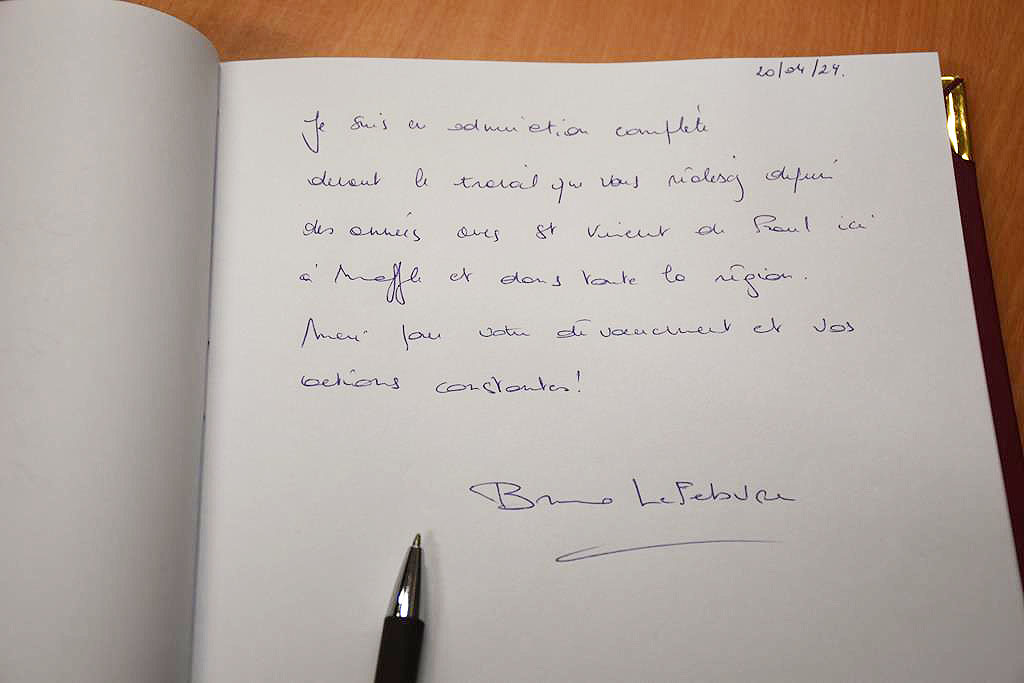 20/04/24.
Je suis en admiration complète
devant le travail que vous réalisez depuis
des années avec St Vincent de Paul ici
à Maffle et dans toute la région.
Merci pour votre dévouement et vos
actions constantes!
Bruno Lefebvre